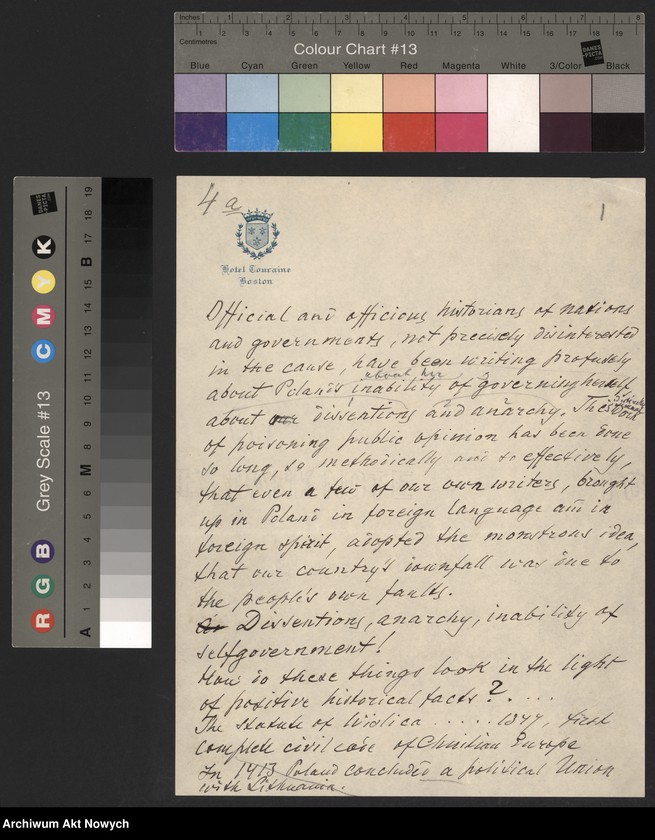 inches 1 2 3 4 5 6 7 8
Centimetres 1 2 3 4 5 6 7 8 9 10 11 12 13 14 15 16 17 18 19
Colour Chart #13
DANES PICTA
Blue Cyan Green Yellow Red Magenta White 3/Color Black
Grey Scale #13
R G B C M Y K
A 1 2 3 4 5 6 M 8 9 10 11 12 13 14 15 B 17 18 19
4 a
1
Hotel Touraine
Boston
Official and officious historians of nations
and governments, not precisely disinterested
in the cause, have been writing profusely
about her
about Poland's inability of governing herself,
about our dissentions and anarchy. The work
of poisoning public opinion has been done
so long, so methodically and so effectively,
that even a few of our own writers, brought
up in Poland in foreign language and in
foreign spirit, adopted the monstrous idea,
that our country's downfall was due to
the people's own faults.
Dissentions, anarchy, inability of
selfgovernment!
How do these things look in the light
of positive historical facts? ....
The statute of Wislica ..... 1347, first
complete civil code of Christian Europe
In 1413 Poland concluded a political Union
with Lithuania.
Archiwum Akt Nowych